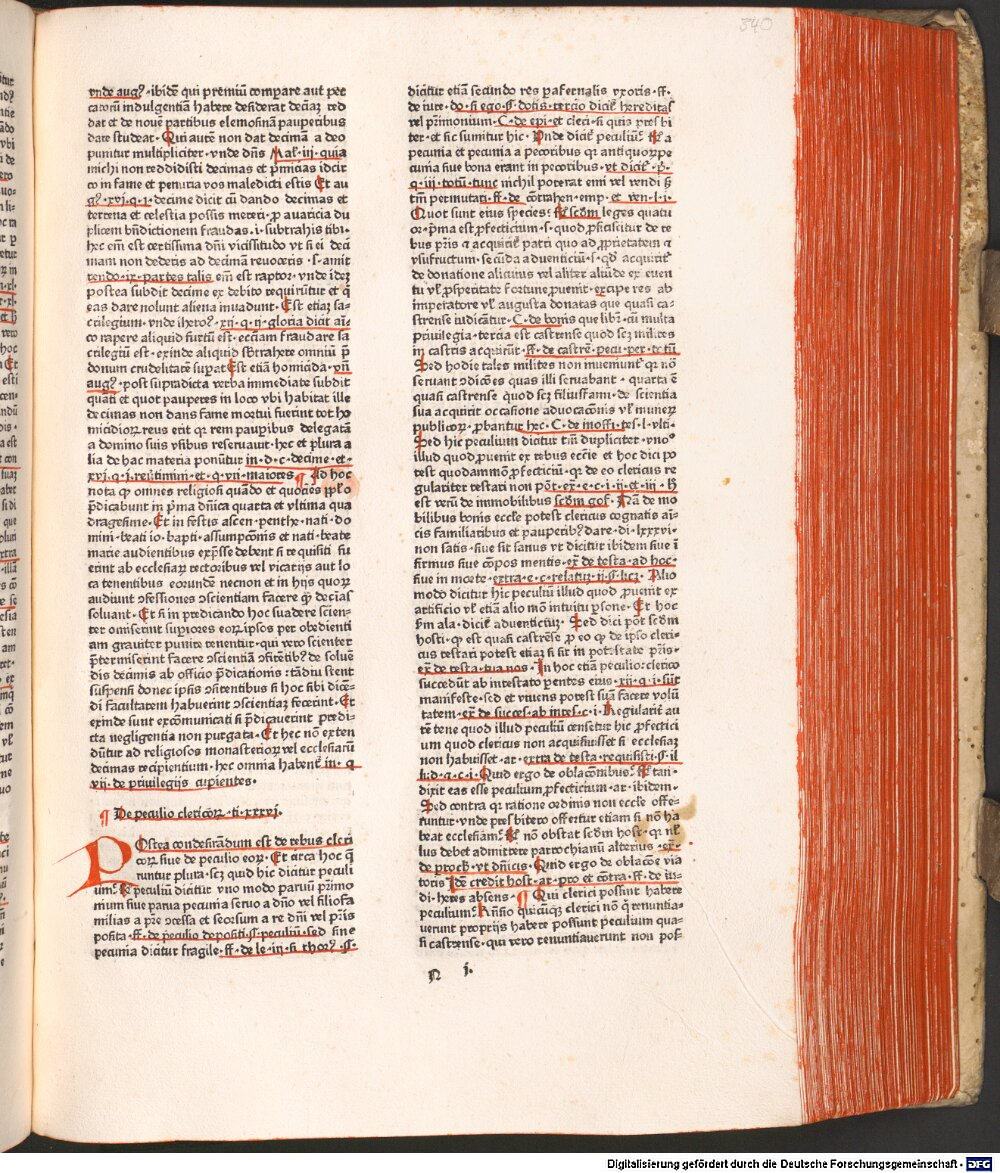 vnde augꝰ · ibidē qui premiū compare aut pec
catorū indulgentiā habere desiderat deciaꝫ red
dat et de nouē partibus elemosinā pauperibus
dare studeat · Qui autē non dat decimā a deo
punitur multipliciter · vnde dn̄s Mal · iij · quia
michi non reddidisti decimas et p̄micias idcir
co in fame et penuria vos maledicti estis Et au
gꝰ · xvi · q · i · decime dicit cū dando decimas et
terrena et celestia possis mereri · ꝓ auaricia du
plicem bn̄dictionem fraudas · i · subtrahis tibi ·
hec em̄ est certissima dn̄i vicissitudo vt si ei deci
mam non dederis ad decimā reuoceris · s · amit
tendo · ix · partes talis em̄ est raptor · vnde ideꝫ
postea subdit decime ex debito requirūtur et q̄
eas dare nolunt aliena inuadunt · Est etiaꝫ sa-
crilegium · vnde iheroꝰ · xij · q · ij · gloria dicit aīc
co rapere aliquid furtū est · ecciam fraudare sa
crilegiū est · exinde aliquid sbtrahere omniū p̄
donum crudelitatē suꝑat Est etiā homicida · vn̄
augꝰ · post supradicta verba immediate subdit
quati et quot pauperes in loco vbi habitat ille
decimas non dans fame mortui fuerint tot ho
micidioꝝ reus erit qꝛ rem pauꝑibus delegatā
a domino suis vsibus reseruauit · hec et plura a
lia de hac materia ponūtur in · d · c · decime · et ·
xvi · q · i · reuertimini · et · q · vij · maiores ¶ Ad hoc
nota ꝙ omnes religiosi quādo et quociēs ppl'o
p̄dicabunt in p̄ma dn̄ica quarta et vltima qua
dragesime · Et in festis ascen · penthe · nati · do
mini · beati io · bapti · assumpcōnis et nati · beate
marie audientibus exp̄sse debent si requisiti fu
erint ab ecclesiaꝝ rectoribus vel vicarijs aut lo
ca tenentibus eorundē necnon et in hijs quoꝝ
audiunt ɔfessiones ɔscientiam facere ꝙ decias
soluant · Et si in predicando hoc suadere scien-
ter omiserint supiores eoꝝ ipsos per obedienti
am grauiter punire tenentur · qui vero scienter
p̄termiserint facere ɔscientiā ɔfitētibꝰ de soluē
dis decimis ab officio p̄dicationis : tādiu stent
suspensi donec ipsis ɔfitentibus si hoc sibi dicē-
di facultatem habuerint ɔscientiaꝫ fecerint · Et
exinde sunt excōmunicati si p̄dicauerint predi-
cta negligentia non purgata · Et hec nō exten
dūtur ad religiosos monasterioꝝ vel ecclesiarū
decimas recipientium · hec omnia habent̄ in · q
vij · de priuilegijs cupientes ·
¶ De peculio clericoꝝ · ti · xxxvi ·
POstea considerādum est de rebus cleri
coꝝ siue de peculio eoꝝ · Et circa hoc q̄
runtur plura · scꝫ quid hic dicitur peculi
um : Rͬ peculiū dicitur vno modo paruū pr̄imo
nium siue parua pecunia seruo a dn̄o vel filiofa
milias a pr̄e ɔcessa et seorsum a re dn̄i vel pr̄is
posita · ff · de peculio depositi · §· peculiū · sed sine
pecunia dicitur fragile · ff · de le · iij · si choꝝ · §·
dicitur etiā secūdo res ꝑafernalis vxoris · ff ·
de iure · do · si ego · §· dotis · tercio dicit̄ hereditas
vel pr̄imonium · C · de epi · et cleri · si quis presbi
ter · et sic sumitur hic · Vnde dicit̄ peculiū : Rͬ a
pecunia et pecunia a pecoribus qꝛ antiquoꝝ pe
cunia siue bona erant in pecoribus · vt dicit̄ · p̄ ·
q · iij · totū · tunc nichil poterat emi vel vendi sꝫ
tm̄ permutari · ff · de cōtrahen · emp · et ven · l · i ·
Quot sunt eius species : Rͬ scd̄m leges quatu
or · p̄ma est ꝓfecticium · s · quod ꝓficiscitur de re
bus pr̄is ⁊ acquirit̄ patri quo ad ꝓprietatem ⁊
vsufructum · secūda aduenticiū · s · qd̓ acquirit̄
de donatione alicuius vel aliter aliūde ex euen
tu vel ꝓsperitate fortune ꝓuenit · excipe res ab
imperatore vel augusta donatas que quasi ca-
strense iudicātur · C · de bonis que libꝛ · cū multa
priuilegia · tercia est castrense quod scꝫ milites
in castris acquirūt · ff · de castrē · pecu · per · totū
Sed hodie tales milites non inueniunt̄ qꝛ nō
seruant ɔdicōes quas illi seruabant · quarta ē
quasi castrense quod scꝫ filiusfami · de scientia
sua acquirit occasione aduocacōnis vel muneꝝ
publicoꝝ · ꝓbantur hec · C · de inoffi · tes · l · vlti ·
Sed hic peculium dicitur tm̄ dupliciter · vnoº
illud quod ꝓuenit ex rebus ecc̄ie et hoc dici po
test quodammō ꝓfecticiū · qꝛ de eo clericus re
gulariter testari non pōt · ex̄ · e · c · i · ij · et · iij · Hͦ
est verū de immobilibus scd̄m gof · Nā de mo
bilibus bonis eccle potest clericus cognatis aī-
cis familiaribus et pauperibꝰ dare · di · lxxxvi ·
non satis · siue sit sanus vt dicitur ibidem siue ī
firmus siue cōpos mentis · ex̄ de testa · ad hoc ·
siue in morte · extra · e · c · relatuꝝ · ij · §· licꝫ · Alio
modo dicitur hic peculiū illud quod ꝓuenit ex
artificio vel etiā alio mō intuitu ꝑsone · Et hoc
s̄m ala · dicit̄ aduenticiū · Sed dici pōt scd̄m
hosti · ꝙ est quasi castrēse ꝓ eo ꝙ de ipso cleri-
cus testari potest etiaꝫ si sit in potestate pr̄is ·
ex̄ de testa · tua nos · In hoc etiā peculio : clerico
succedūt ab intestato ꝑentes eius · xij · q · i · sūt
manifeste · sed et viuens potest suā facere volū
tatem · ex̄ de succes · ab intes · c · i · Regularit̄ au
tē tene quod illud peculiū censetur hic ꝓfectici
um quod clericus non acquisiuisset si ecclesiaꝫ
non habuisset · ar · extra de testa · requisisti · §· il
lud · q · c · i · Quid ergo de oblacōnibus : Rͬ tan ·
dixit eas esse peculium ꝓfecticium · ar · ibidem ·
Sed contra qꝛ ratione ordinis non eccle offe-
runtur · vnde presbitero offertur etiam si nō ha
beat ecclesiam : Rͬ nō obstat scd̄m host · qꝛ nl̄-
lus debet admittere parrochianū alterius · ex̄ ·
de proch · vt dn̄icis · Quid ergo de oblacōe via
toris Idē credit host · ar · pro et cōtra · ff · de iu-
di · heres absens · ¶ Qui clerici possint habere
peculium : Rͬ nsio quicūqꝫ clerici nō q̄ renuntia-
uerunt proprijs habere possunt peculium qua-
si castrense · qui vero renuntiauerunt non pos-
N j ·
340
Digitalisierung gefördert durch die Deutsche Forschungsgemeinschaft · DFG